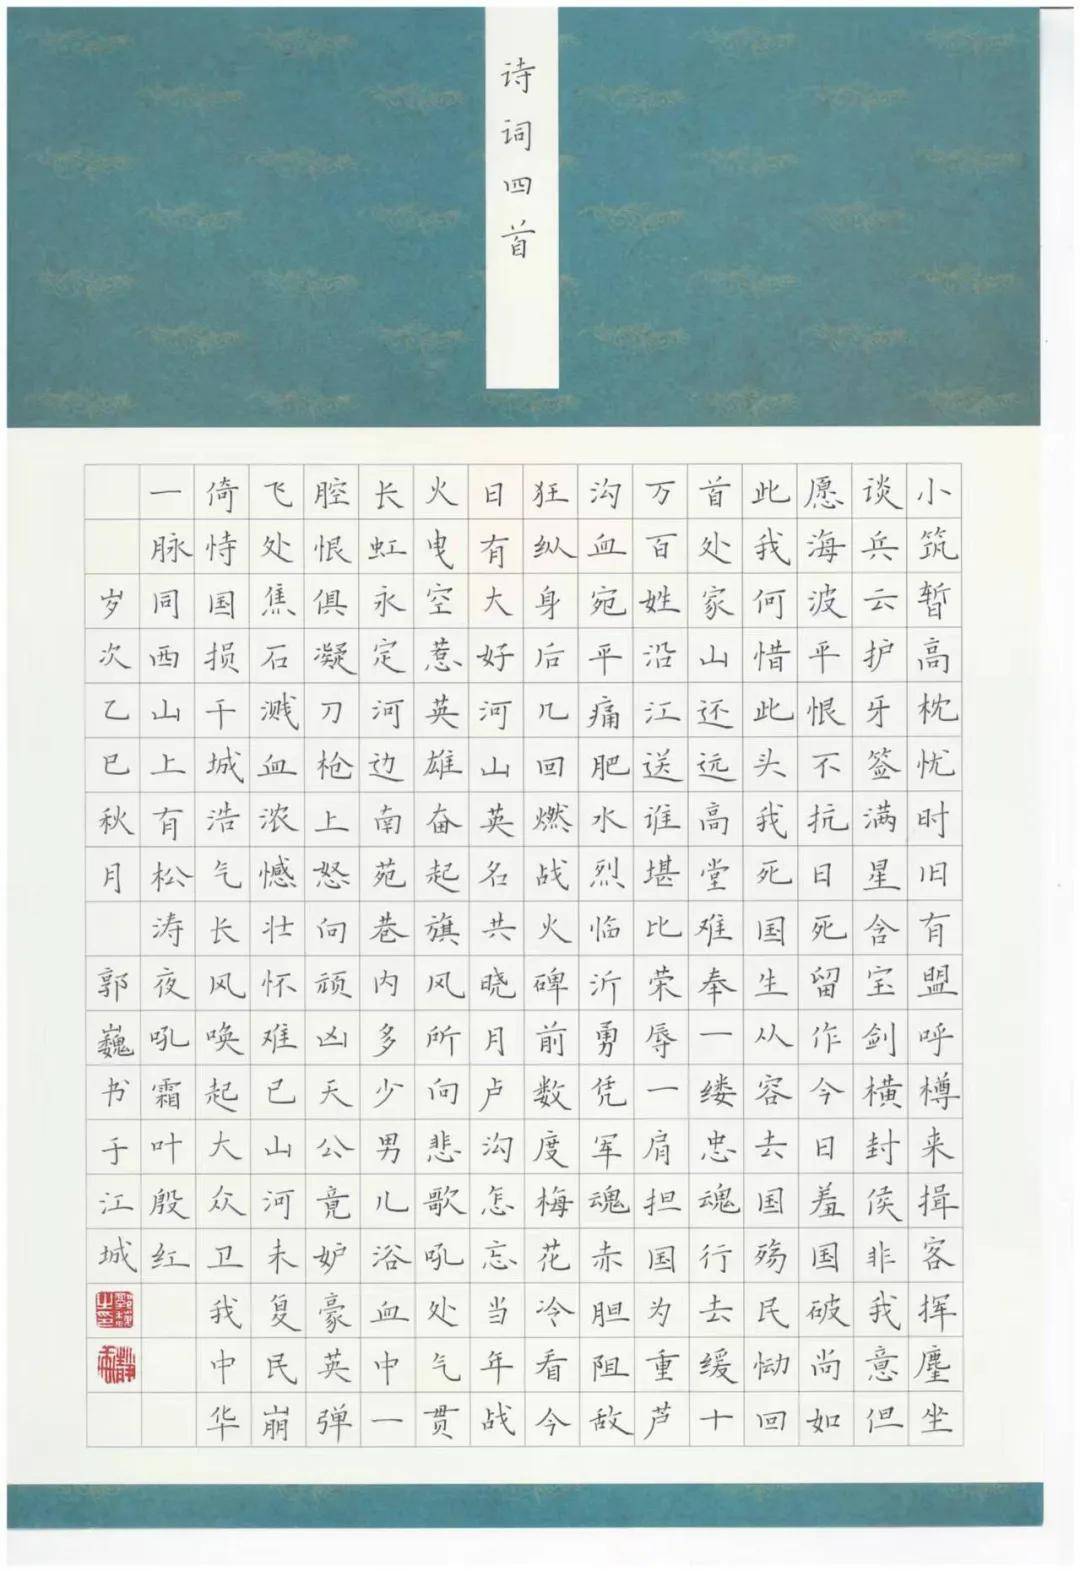 诗词四首
小筑暂高枕忧时旧有盟呼樽来揖客挥麈坐
谈兵云护牙签满星含宝剑横封侯非我意但
愿海波平恨不抗日死留作今日羞国破尚如
此我何惜此头我死国生从容去国殇民恸回
首处家山还远高堂难奉一缕忠魂行去缓十
万百姓沿江送谁堪比荣辱一肩担国为重芦
沟血宛平痛肥水烈临沂勇凭军魂赤胆阻敌
狂纵身后几回燃战火碑前数度梅花冷看今
日有大好河山英名共晓月卢沟怎忘当年战
火电空惹英雄奋起旗风所向悲歌吼处气贯
长虹永定河边南苑巷内多少男儿浴血中一
腔恨俱凝刀枪上怒向顽凶天公竟妒豪英弹
飞处焦石溅血浓憾壮怀难已山河未复民崩
倚恃国损干城浩气长风唤起大众卫我中华
一脉同西山上有松涛夜吼霜叶殷红
岁次乙巳秋月 郭巍书于江城
郭巍之印